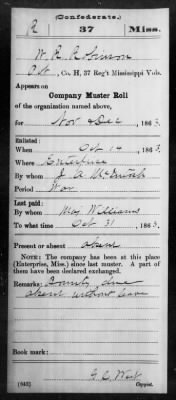 (Confederate.)
R 37 Miss.
W. R. Robinson
Co. H, 37 Reg't Mississippi Vols.
Appears on
Company Muster Roll
of the organization named above,
for Nov & Dec, 1863.
Enlisted:
When Oct 14, 1863.
Where Enterprise
By whom J. A.
Period War
Last paid:
By whom Maj Williams
To what time Oct 31, 1863.
Present or absent absent
NOTE: The company has been at this place
(Enterprise, Miss.) since last muster. A part of
them have been declared exchanged.
Remarks: Bounty due
absent without leave
Book mark:
(642) G. C. West
Copyist.